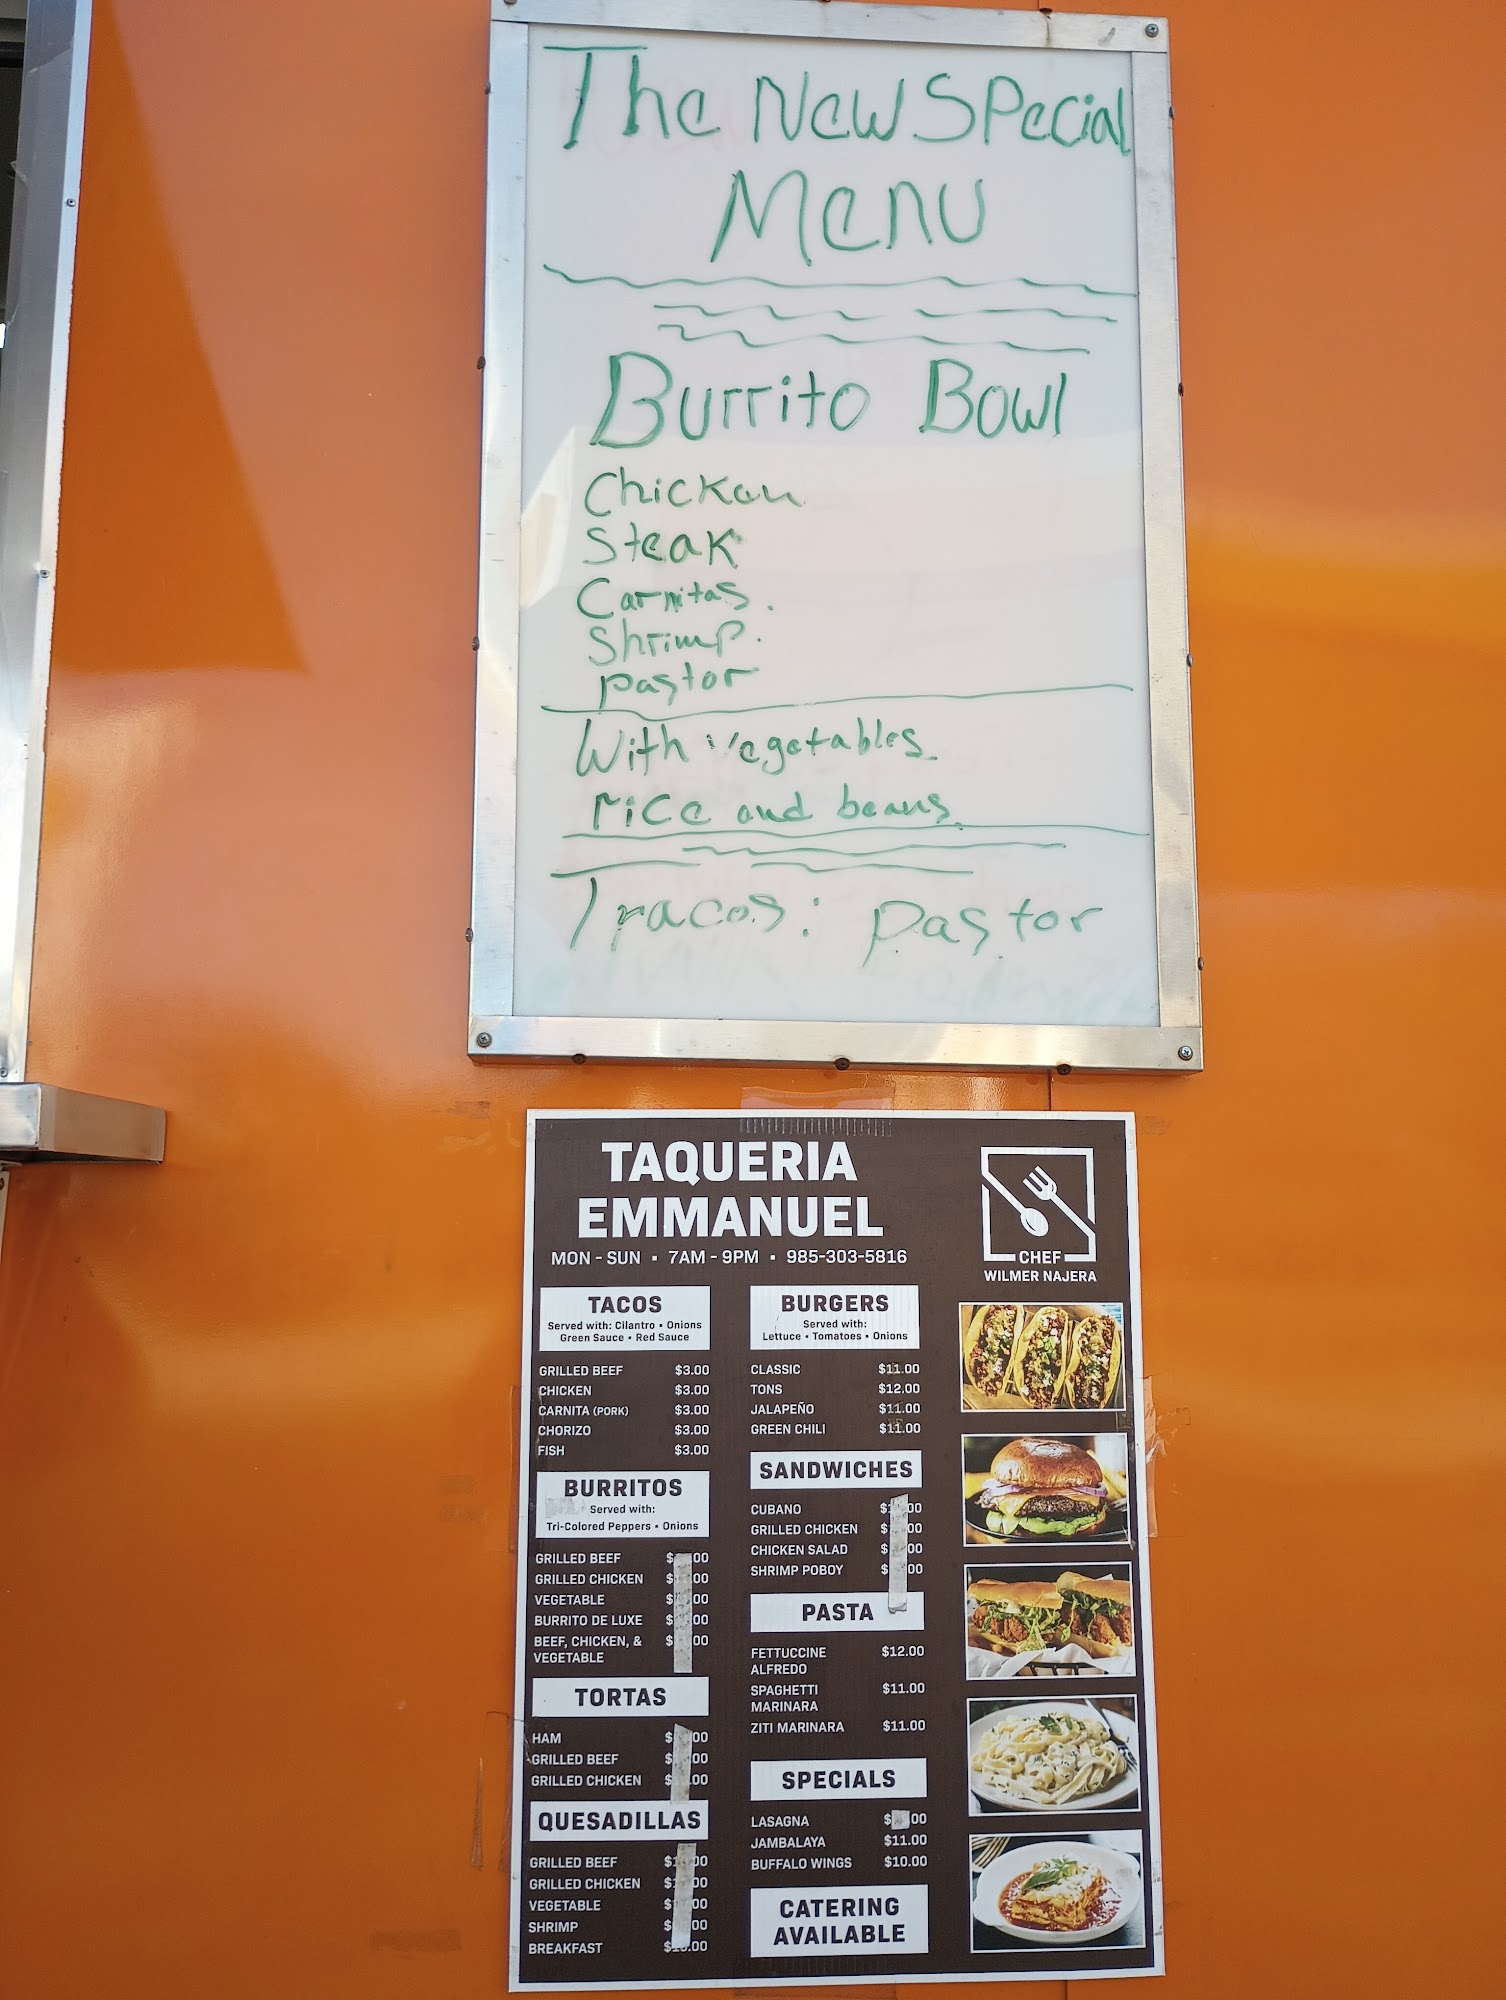 The New Special
Menu
Burrito Bowl
Chickan
Steak
Carnitas.
Shrimp.
Pastor
With vegetables
rice and beans.
Tracos: Pastor
TAQUERIA
EMMANUEL
MON - SUN • 7AM - 9PM • 985-303-5816
CHEF
WILMER NAJERA
TACOS
Served with: Cilantro • Onions
Green Sauce • Red Sauce
GRILLED BEEF $3.00
CHICKEN $3.00
CARNITA (PORK) $3.00
CHORIZO $3.00
FISH $3.00
BURRITOS
Served with:
Tri-Colored Peppers • Onions
GRILLED BEEF
GRILLED CHICKEN
VEGETABLE
BURRITO DE LUXE
BEEF, CHICKEN, &
VEGETABLE
TORTAS
HAM
GRILLED BEEF
GRILLED CHICKEN
QUESADILLAS
GRILLED BEEF
GRILLED CHICKEN
VEGETABLE
SHRIMP
BREAKFAST
BURGERS
Served with:
Lettuce • Tomatoes • Onions
CLASSIC $11.00
TONS $12.00
JALAPEÑO $11.00
GREEN CHILI $11.00
SANDWICHES
CUBANO
GRILLED CHICKEN
CHICKEN SALAD
SHRIMP POBOY
PASTA
FETTUCCINE $12.00
ALFREDO
SPAGHETTI $11.00
MARINARA
ZITI MARINARA $11.00
SPECIALS
LASAGNA
JAMBALAYA $11.00
BUFFALO WINGS $10.00
CATERING
AVAILABLE